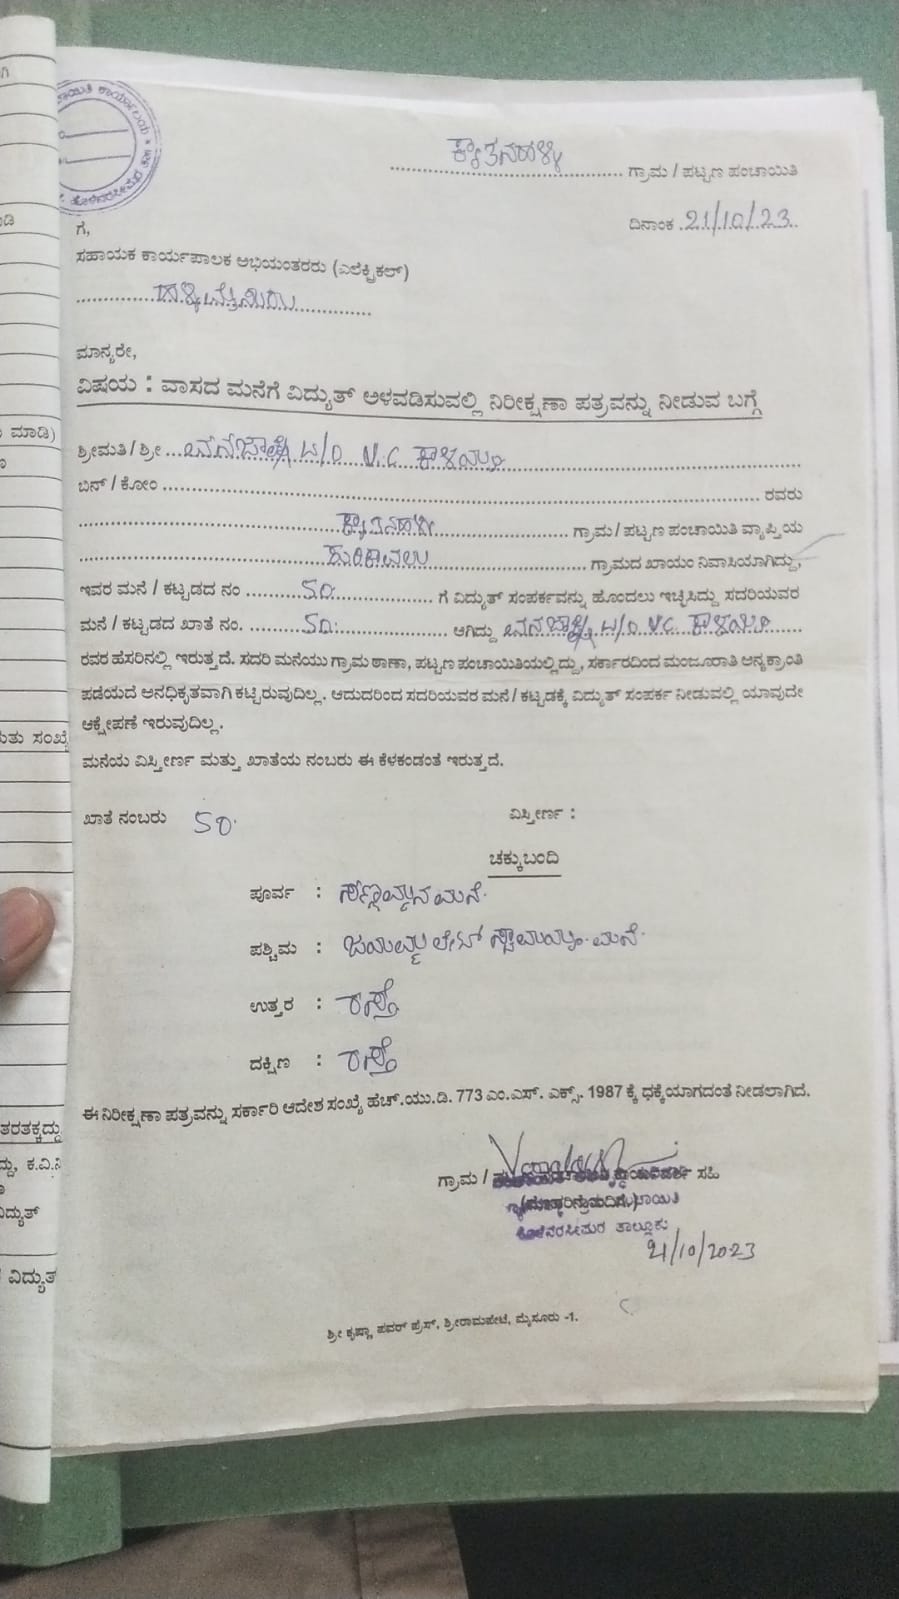 ಕ್ಯಾತನಹಳ್ಳಿ
ಗ್ರಾಮ / ಪಟ್ಟಣ ಪಂಚಾಯಿತಿ
ದಿನಾಂಕ 21/10/23
ಗೆ,
ಸಹಾಯಕ ಕಾರ್ಯಪಾಲಕ ಅಭಿಯಂತರರು (ಎಲೆಕ್ಟ್ರಿಕಲ್)
ಮಾನ್ಯರೇ,
ವಿಷಯ : ವಾಸದ ಮನೆಗೆ ವಿದ್ಯುತ್ ಅಳವಡಿಸುವಲ್ಲಿ ನಿರೀಕ್ಷಣಾ ಪತ್ರವನ್ನು ನೀಡುವ ಬಗ್ಗೆ
ಶ್ರೀಮತಿ / ಶ್ರೀ W/O V.C ಕಾಳಯ್ಯ
ಬಿನ್ / ಕೋಂ ರವರು
ಕ್ಯಾತನಹಳ್ಳಿ ಗ್ರಾಮ / ಪಟ್ಟಣ ಪಂಚಾಯಿತಿ ವ್ಯಾಪ್ತಿಯ
ಗ್ರಾಮದ ಖಾಯಂ ನಿವಾಸಿಯಾಗಿದ್ದು,
ಇವರ ಮನೆ / ಕಟ್ಟಡದ ನಂ 50. ಗೆ ವಿದ್ಯುತ್ ಸಂಪರ್ಕವನ್ನು ಹೊಂದಲು ಇಚ್ಛಿಸಿದ್ದು ಸದರಿಯವರ
ಮನೆ / ಕಟ್ಟಡದ ಖಾತೆ ನಂ. 50. ಆಗಿದ್ದು W/O V.C. ಕಾಳಯ್ಯ
ರವರ ಹೆಸರಿನಲ್ಲಿ ಇರುತ್ತದೆ. ಸದರಿ ಮನೆಯು ಗ್ರಾಮ ಠಾಣಾ, ಪಟ್ಟಣ ಪಂಚಾಯಿತಿಯಲ್ಲಿದ್ದು, ಸರ್ಕಾರದಿಂದ ಮಂಜೂರಾತಿ ಅನ್ಯಕ್ರಾಂತಿ
ಪಡೆಯದೆ ಅನಧಿಕೃತವಾಗಿ ಕಟ್ಟಿರುವುದಿಲ್ಲ. ಆದುದರಿಂದ ಸದರಿಯವರ ಮನೆ / ಕಟ್ಟಡಕ್ಕೆ ವಿದ್ಯುತ್ ಸಂಪರ್ಕ ನೀಡುವಲ್ಲಿ ಯಾವುದೇ
ಆಕ್ಷೇಪಣೆ ಇರುವುದಿಲ್ಲ.
ಮನೆಯ ವಿಸ್ತೀರ್ಣ ಮತ್ತು ಖಾತೆಯ ನಂಬರು ಈ ಕೆಳಕಂಡಂತೆ ಇರುತ್ತದೆ.
ಖಾತೆ ನಂಬರು 50. ವಿಸ್ತೀರ್ಣ :
ಚಕ್ಕುಬಂದಿ
ಪೂರ್ವ : ಸಣ್ಣಯ್ಯನ ಮನೆ.
ಪಶ್ಚಿಮ : ಜಯಮ್ಮ ಲೇಟ್ ಸ್ವಾಮಯ್ಯ ಮನೆ.
ಉತ್ತರ : ರಸ್ತೆ
ದಕ್ಷಿಣ : ರಸ್ತೆ
ಈ ನಿರೀಕ್ಷಣಾ ಪತ್ರವನ್ನು ಸರ್ಕಾರಿ ಆದೇಶ ಸಂಖ್ಯೆ ಹೆಚ್.ಯು.ಡಿ. 773 ಎಂ.ಎಸ್. ಎಕ್ಸ್. 1987 ಕ್ಕೆ ಧಕ್ಕೆಯಾಗದಂತೆ ನೀಡಲಾಗಿದೆ.
ಗ್ರಾಮ / ಸಹಿ
ತಾಲ್ಲೂಕು
21/10/2023
ಶ್ರೀ ಕೃಷ್ಣಾ ಪವರ್ ಪ್ರೆಸ್, ಶ್ರೀರಾಮಪೇಟೆ, ಮೈಸೂರು -1.